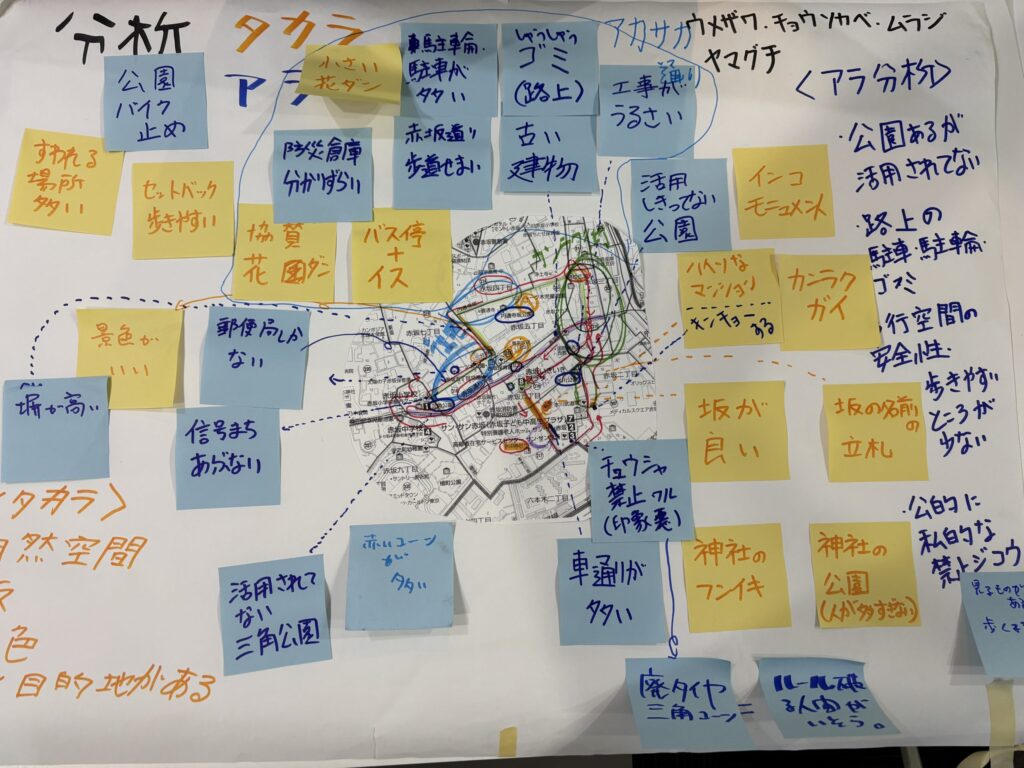 分析
タカラ
アラ
アカサカ
ウメザワ・チョウソカベ・ムラジ
ヤマグチ
公園
バイク
止め
小さい
花ダン
駐車が
多い
ゴミ
(路上)
工事が
うるさい
すわれる
場所
多い
セットバック
歩きやすい
防災倉庫
分かずらい
赤坂通り
歩道せまい
古い
建物
活用
しきってない
公園
インコ
モニュメント
協賛
花園ダン
バス停
+
イス
ハイソな
マンション
キンチョー
する
カンラク
ガイ
景色が
いい
郵便局しか
ない
塀が高い
信号まち
あぶない
坂が
良い
坂の名前の
立札
チュウシャ
禁止ワル
(印象悪)
活用されて
ない
三角公園
赤いコーン
が
多い
車通りが
多い
神社の
フンイキ
神社の
公園
(人が多すぎない)
廃タイヤ
三角コーン
=
ルール破
る人間が
いそう。
<アラ分析>
・公園あるが
活用されてない
・路上の
駐車駐輪・
ゴミ
行空間の
安全性・
歩きやすい
ところが
少ない
・公的に
私的な
禁トジコウ
タカラ>
然空間
色
目的地がある
赤坂四丁目
赤坂五丁目
赤坂九丁目
六本木二丁目